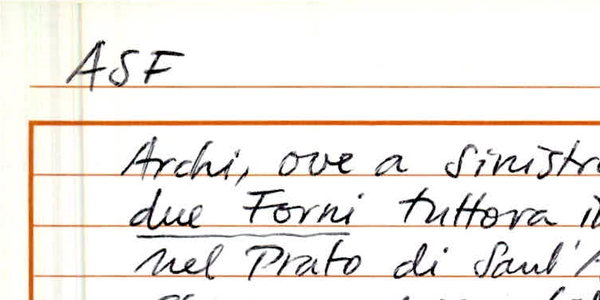 ASF
Archi, ove a sinistra
due Forni tuttora
nel Prato di Sant'